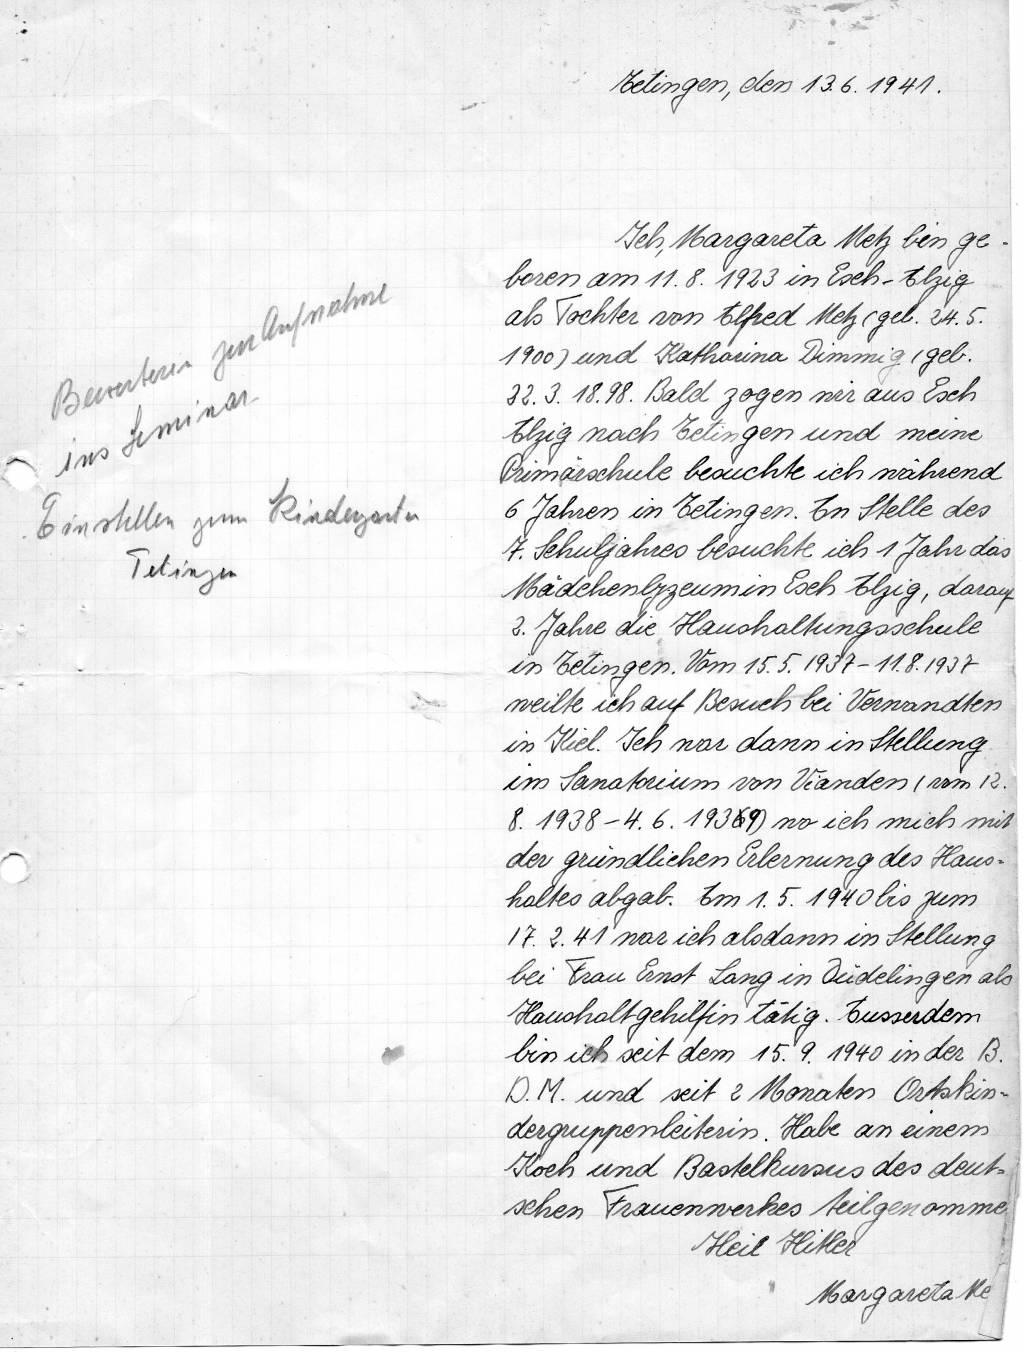 Tetingen, den 13.6. 1941.
Ich, Margareta Metz bin ge-
boren am 11. 8. 1923 in Esch-Alzig
als Tochter von Alfred Metz (geb. 24. 5.
1900) und Katharina Dimmig (geb.
22. 3. 18.98. Bald zogen wir aus Esch
Alzig nach Tetingen und meine
Primärschule besuchte ich während
6 Jahren in Tetingen. An Stelle des
7. Schuljahres besuchte ich 1 Jahr das
Mädchenlyzeum in Esch Alzig, darauf
2. Jahre die Haushaltungsschule
in Tetingen. Vom 15. 5. 1937 – 11. 8. 1937
weilte ich auf Besuch bei Verwandten
in Kiel. Ich war dann in Stellung
im Sanatorium von Vianden (vom 12.
8. 1938 – 4. 6. 1939) wo ich mich mit
der gründlichen Erlernung des Haus-
haltes abgab. Am 1. 5. 1940 bis zum
17. 2. 41 war ich alsdann in Stellung
bei Frau Ernst Lang in Düdelingen als
Haushaltgehilfin tätig. Ausserdem
bin ich seit dem 15. 9. 1940 in der B.
D. M. und seit 2 Monaten Ortskin-
dergruppenleiterin. Habe an einem
Koch und Bastelkursus des deut-
schen Frauenwerkes teilgenomme
Heil Hitler
Margareta Me
Bewerberin zur Aufnahme
ins Seminar
Einstellen zum Kindergarten
Tetingen